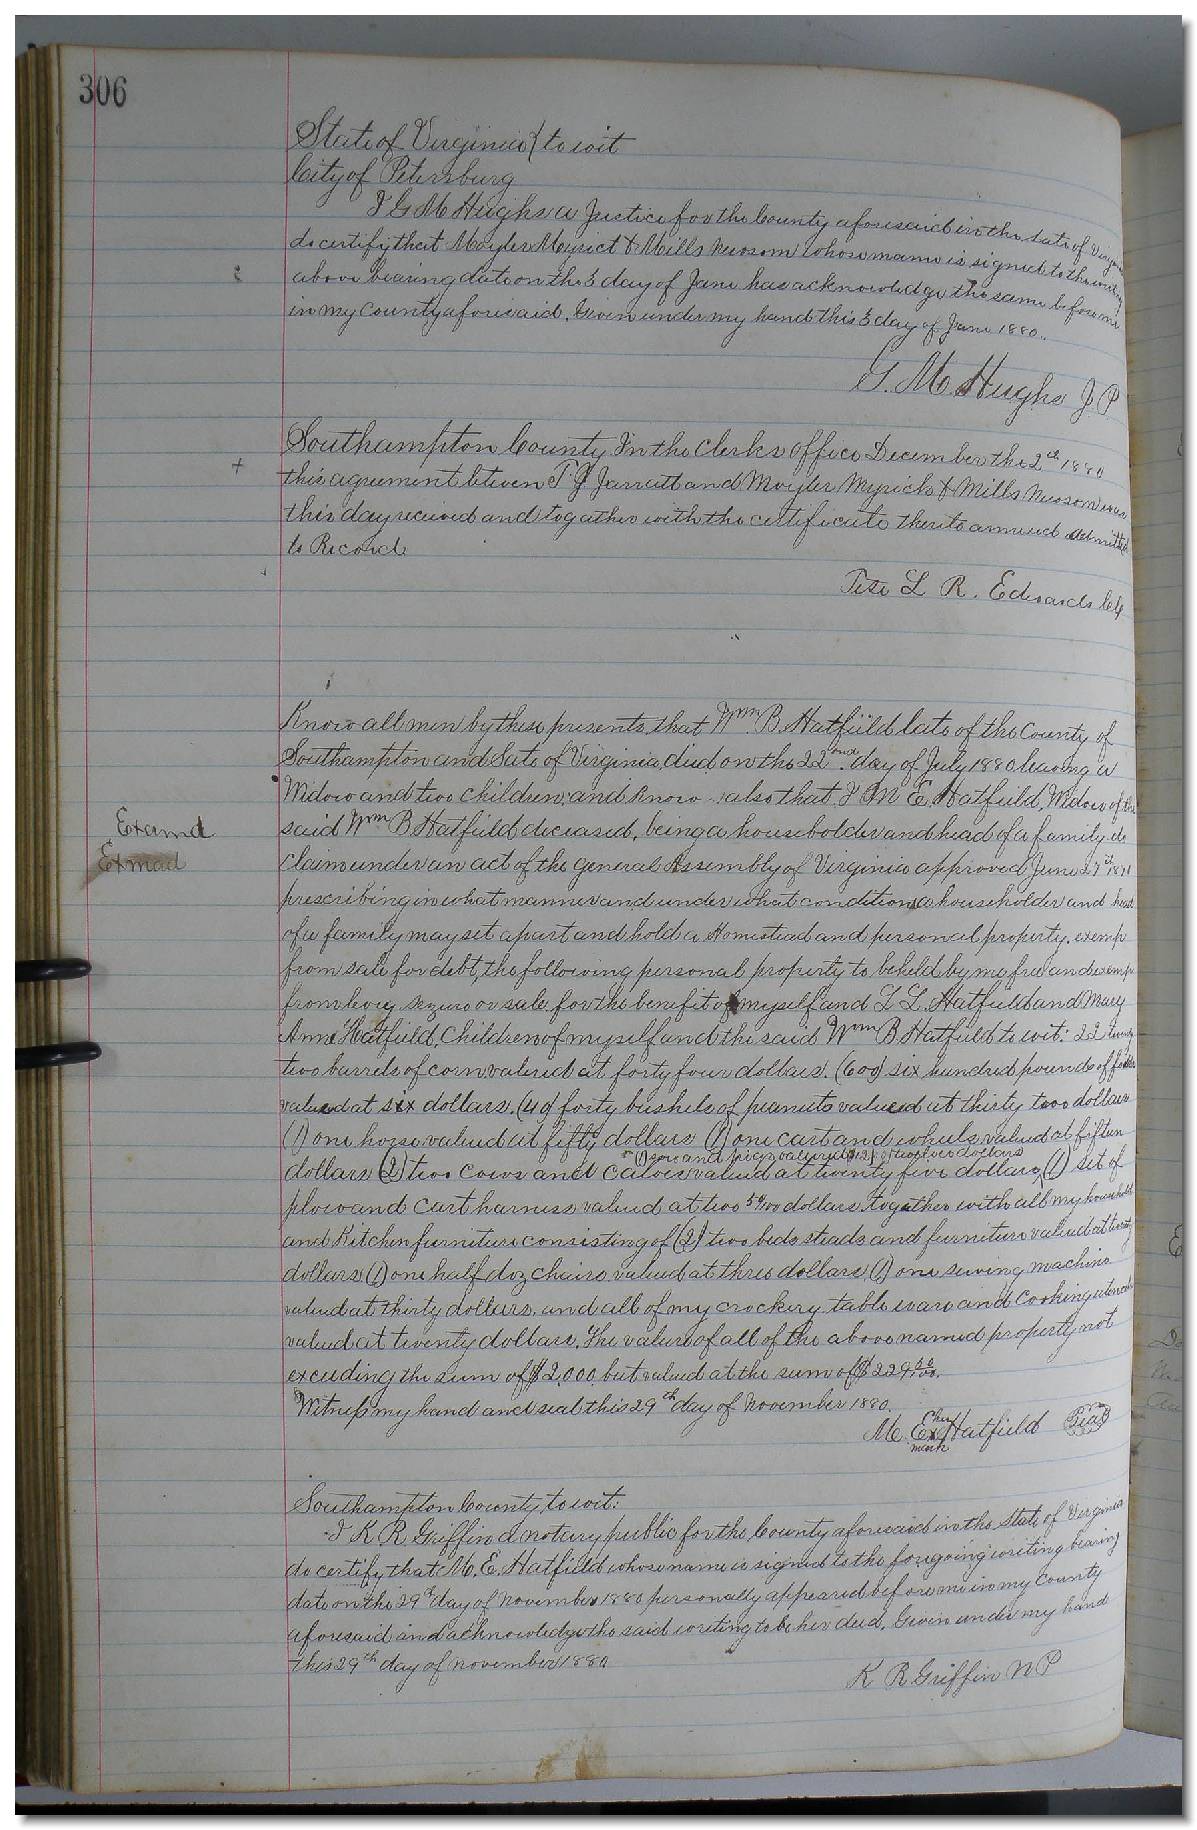 306
State of Virginia } to wit
City of Petersburg
I G M Hughs a Justice for the County aforesaid in the State of Virginia
do certify that Moyler Myrick & Mills Newsom whose name is signed to the writing
above bearing date on the 3 day of June has acknowledge the same before me
in my County aforesaid. Given under my hand this 3 day of June 1880.
G. M. Hughs J. P
Southampton County In the Clerks office December the 2th 1880
this agreement between T J Jarratt and Moyler Myrick & Mills Newsom was
this day received and together with the certificate thereto annexed admitted
to Record
Teste L R. Edwards Clk
Know all men by these presents, that Wm B. Hatfield late of the County of
Southampton and Sate of Virginia, died on the 22nd day of July 1880 leaving a
Widow and two children, and know also that I M E Hatfield, Widow of the
Examd
said Wm B Hatfield deceased, being a householder and head of a family do
Exmad
claim under an act of the general Assembly of Virginia approved June 27th
prescribing in what manner and under what conditions a householder and head
of a family may set apart and hold a Homestead and personal property, exemp
from sale for debt, the following personal property to be held by me free and exemp
from levy, or sale, for the benefit of myself and L L. Hatfield and Mary
Ann Hatfield, Children of myself and the said Wm B Hatfield to wit: 22 twenty
two barrels of corn valued at forty four dollars. (600) six hundred pounds of fodder
valued at six dollars. (40) forty bushels of peanuts valued at thirty two dollars
(1) one horse valued at fifty dollars (1) one cart and wheels valued at fifteen
(1) sow and pigs valued twelve dollars
dollars (2) two cows and calves valued at twenty five dollars, (1) set of
plow and cart harness valued at two 50/100 dollars, together with all my household
and Kitchen furniture consisting of (2) two beds steads and furniture valued at twenty
dollars (1) one half doz chairs valued at three dollars, (1) one sewing machine
valued at thirty dollars, and all of my crockery table ware and cooking utensils
valued at twenty dollars. The value of all of the above named property not
exceeding the sum of $2,000 but valued at the sum of $229 50/100.
Witness my hand and seal this 29th day of November 1880.
her
M. E x Hatfield Seal
mark
Southampton County, to wit:
I K R Griffin a notary public for the County aforesaid in the State of Virginia
do certify that M. E. Hatfield whose name is signed to the foregoing writing bearing
date on the 29th day of November 1880 personally appeared before me in my County
aforesaid and acknowledge the said writing to be her deed. Given under my hand
this 29th day of November 1880
K R Griffin N P